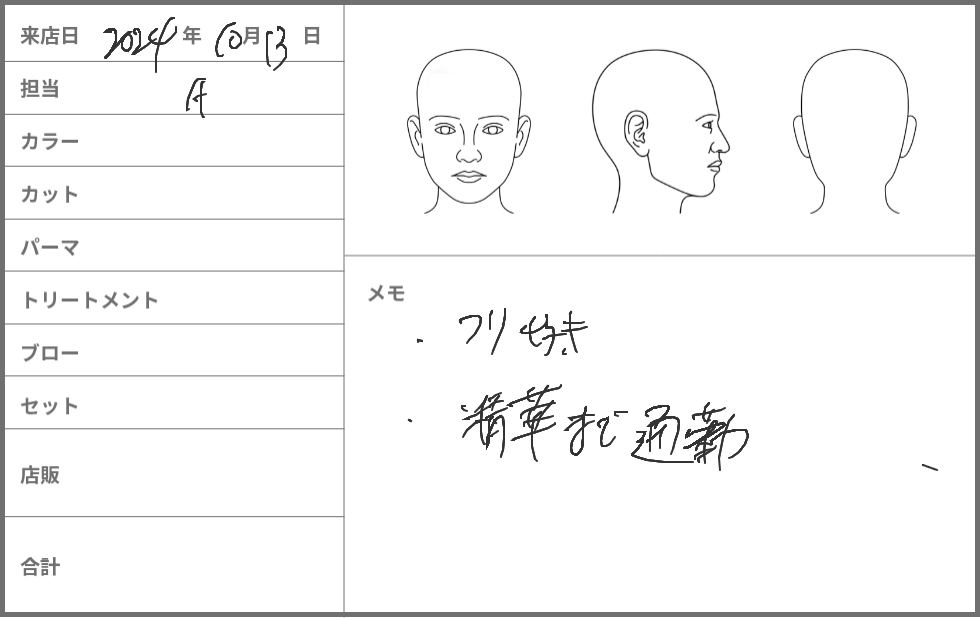 来店日 2024年 10月13日
担当 A
カラー
カット
パーマ
トリートメント
ブロー
セット
店販
合計
メモ
・フリ
・精華まで通勤